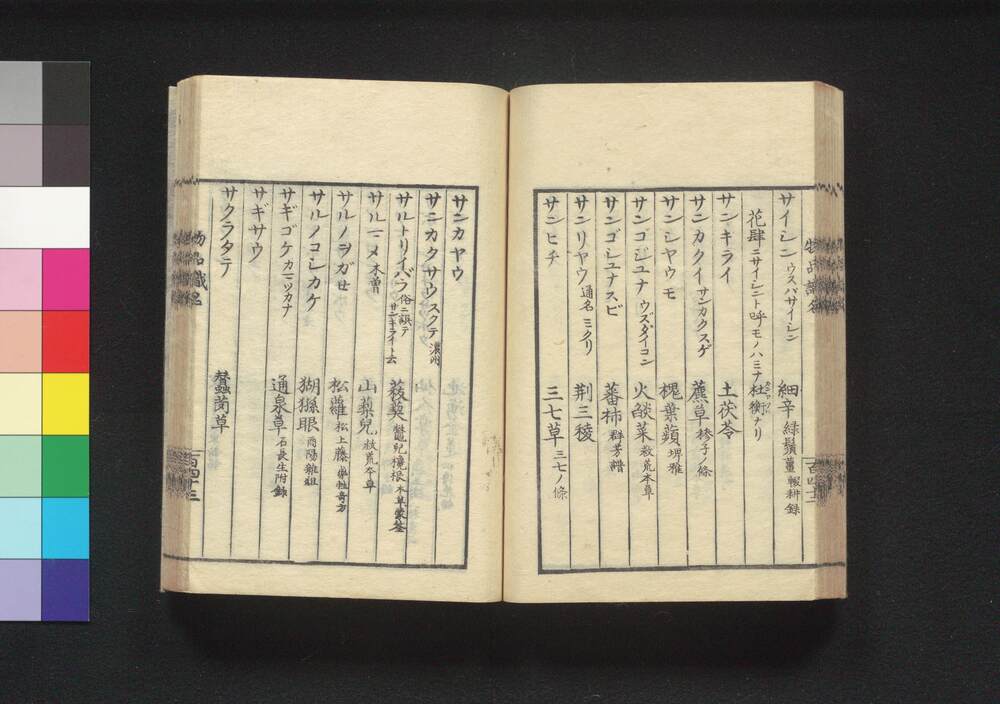 サイシン ウスバサイシン 細辛 緑鬚薑 輟耕録
花肆ニサイシント呼モノハミナ杜衡ナリ
サンキライ 土茯苓
サンカクイ サンカクスゲ 藨草 棕子ノ條
サンシヤウモ 槐葉蘋 埤雅
サンゴジユナ ウズダイコン 火燄菜 救荒本草
サンゴシユナスビ 蕃柿 群芳譜
サンリヤウ 通名 ミクリ 荆三稜
サンヒチ 三七草 三七ノ條
サンカヤウ
サンカクサウ スクテ 濃州
サルトリイバラ 俗ニ誤テサンキライト云 菝葜 鷩兒 根 本草蒙荃
サルニメ 木曽 山藜兒 救荒本草
サルノヲガセ 松蘿 松上藤 奇方
サルノコシカケ 猢猻眼 酉陽雜俎
サギゴケ カニツカナ 通泉草 石長生附録
サギサウ
サクラタデ 蠶繭草
物品識名
百四十三